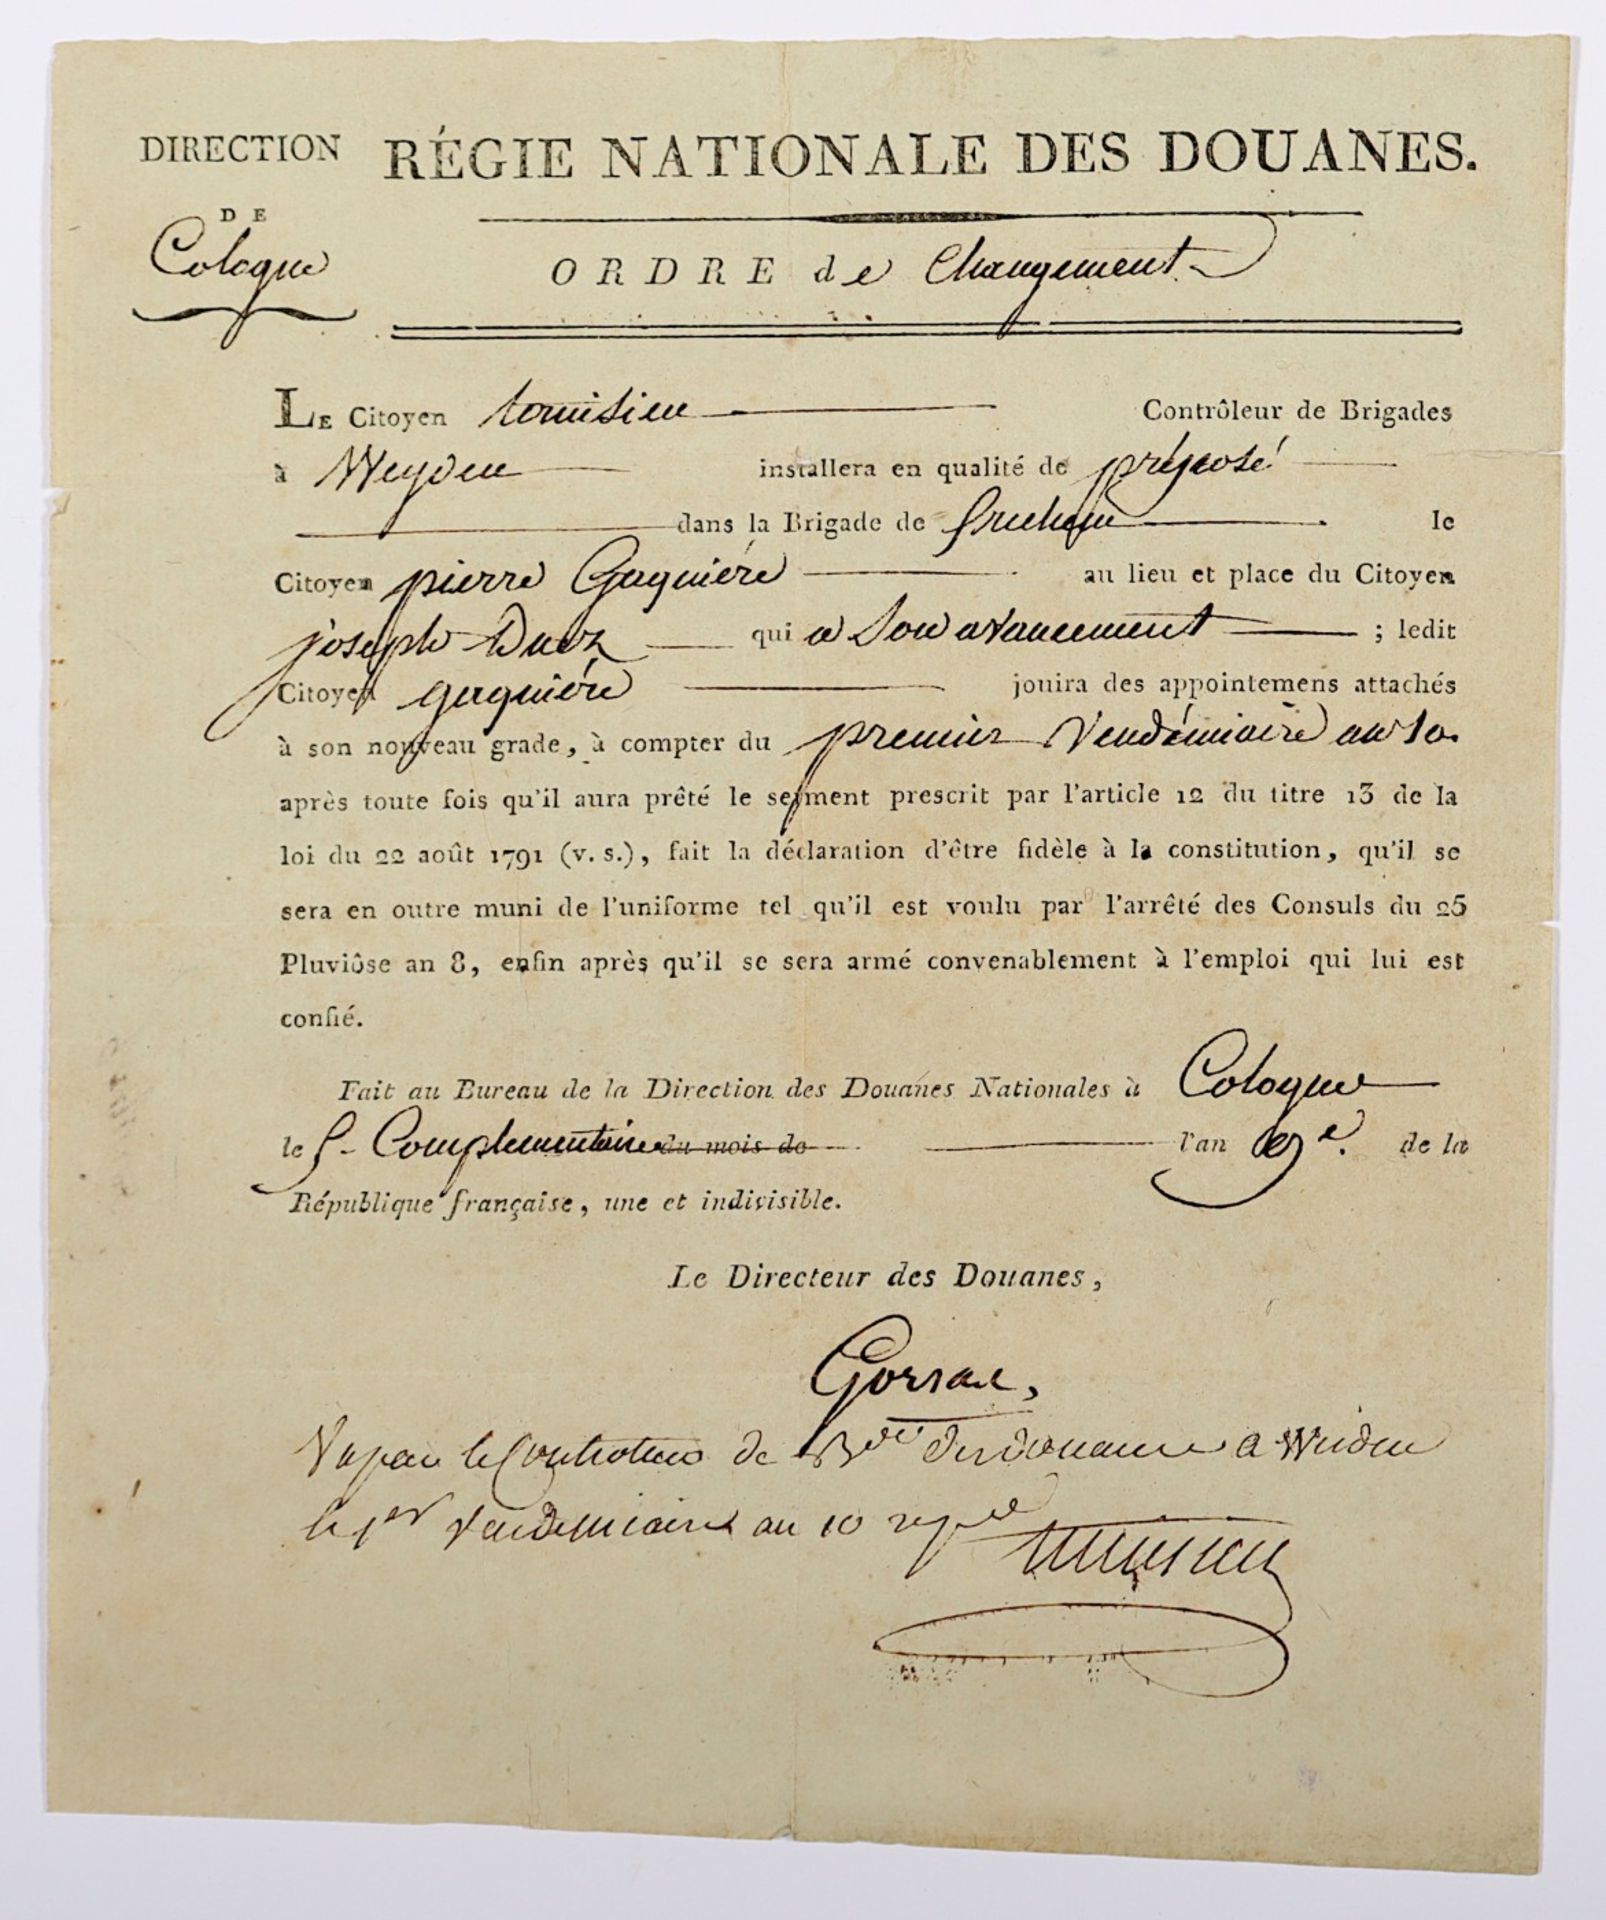 DIRECTION
DE
Cologne
RÉGIE NATIONALE DES DOUANES.
ORDRE de Changement
LE Citoyen tomisien Contrôleur de Brigades
à Weyden installera en qualité de préposé
dans la Brigade de le
Citoyen pierre Gagnière au lieu et place du Citoyen
joseph qui a Son avancement ; ledit
Citoyen gagnière jouira des appointemens attachés
à son nouveau grade, à compter du premier Vendémiaire an 10.
après toute fois qu'il aura prêté le serment prescrit par l'article 12 du titre 13 de la
loi du 22 août 1791 (v. s.), fait la déclaration d'être fidèle à la constitution, qu'il se
sera en outre muni de l'uniforme tel qu'il est voulu par l'arrêté des Consuls du 25
Pluviôse an 8, enfin après qu'il se sera armé convenablement à l'emploi qui lui est
confié.
Fait au Bureau de la Direction des Douanes Nationales à Cologne
le 5. Complementaire du mois de l'an 9e. de la
République française, une et indivisible.
Le Directeur des Douanes,
Vu par le Controleur de Bdes des douanes a Weiden
le 1er Vendemiaire an 10